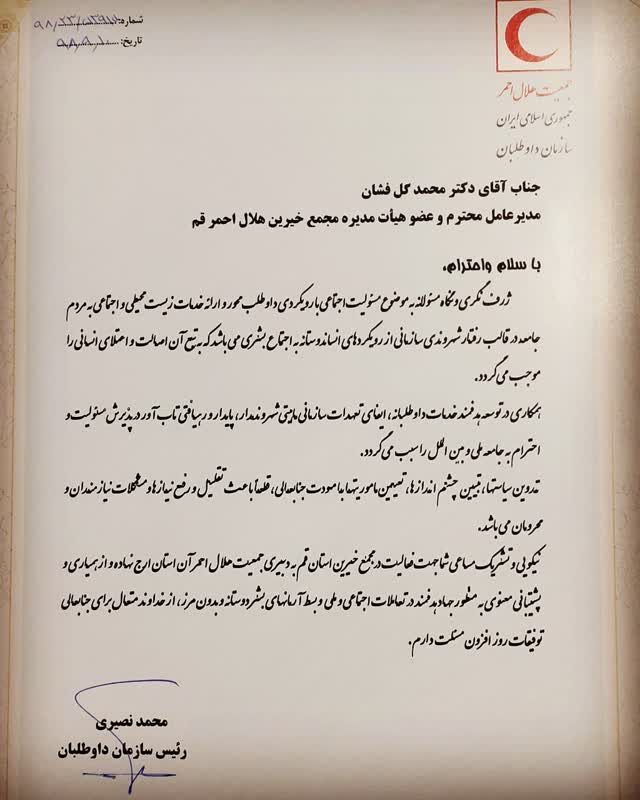 شماره:
تاریخ:
جمعیت هلال احمر
جمهوری اسلامی ایران
سازمان داوطلبان
جناب آقای دکتر محمد گل فشان
مدیرعامل محترم و عضو هیأت مدیره مجمع خیرین هلال احمر قم
با سلام واحترام،
ژرف نگری و نگاه مسئولانه به موضوع مسئولیت اجتماعی با رویکردی داوطلب محور و ارائه خدمات زیست محیطی و اجتماعی به مردم
جامعه در قالب رفتار شهروندی سازمانی از رویکردهای انساندوستانه به اجتماع بشری می باشد که به تبع آن اصالت و اعتلای انسانی را
موجب می گردد.
همکاری در توسعه هدفمند خدمات داوطلبانه، ایفای تعهدات سازمانی شهروندمدار، پایدار و رهیافتی تاب آور در پذیرش مسئولیت و
احترام به جامعه ملی و بین الملل را سبب می گردد.
تدوین سیاستها، تبیین چشم اندازها، تعیین ماموریتها جنابعالی، قطعاً باعث تقلیل و رفع نیازها و مشکلات نیازمندان و
محرومان می باشد.
نیکویی و تشریک مساعی شما جهت فعالیت در مجمع خیرین استان قم به دبیری جمعیت هلال احمر آن استان ارج نهاده و از همیاری و
پشتیبانی معنوی به منظور جهاد هدفمند در تعاملات اجتماعی و ملی و بسط آرمانهای بشردوستانه و بدون مرز، از خداوند متعال برای جنابعالی
توفیقات روز افزون مسئلت دارم.
محمد نصیری
رئیس سازمان داوطلبان